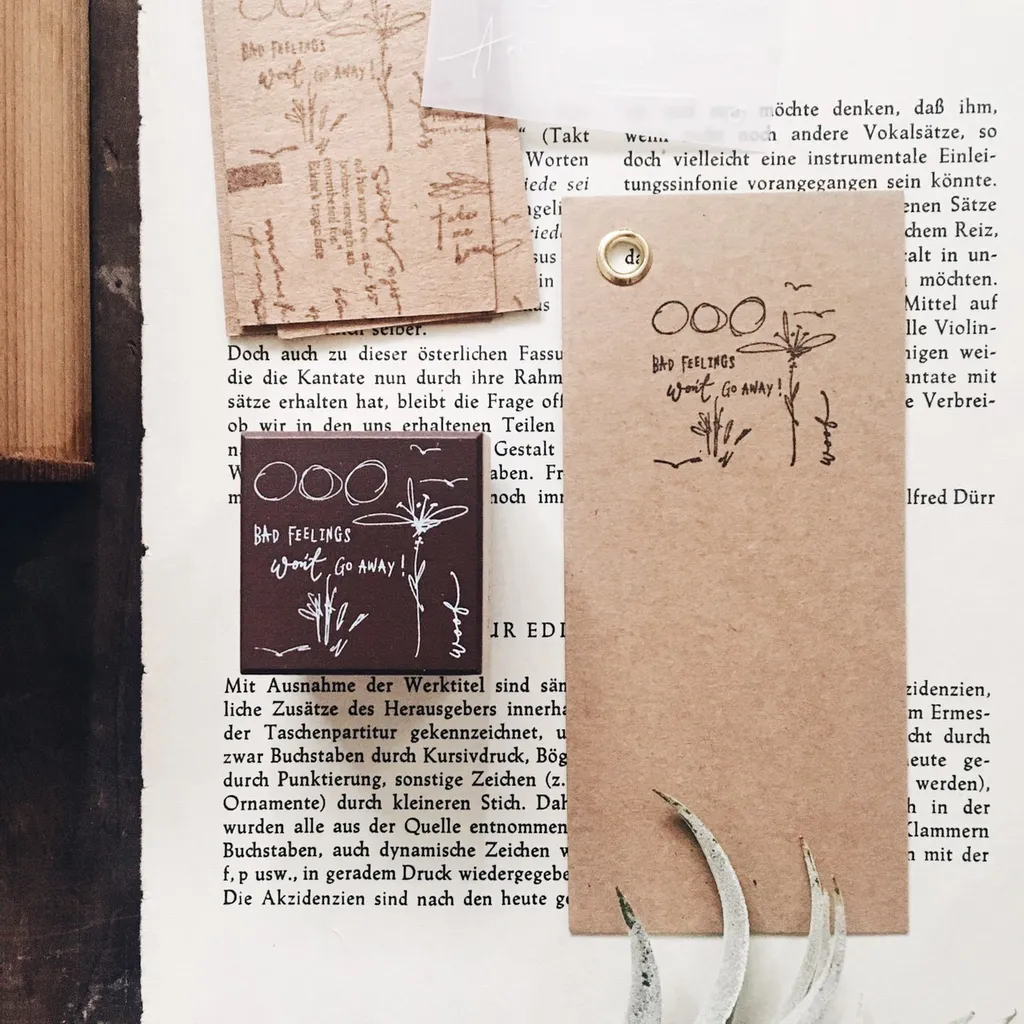 BAD FEELINGS
won't GO AWAY!
“ (Takt
Worten
iede sei
selber.
Doch auch zu dieser österlichen Fassu
die die Kantate nun durch ihre Rahm
sätze erhalten hat, bleibt die Frage off
ob wir in den uns erhaltenen Teilen
Gestalt
aben. Fr
noch imm
möchte denken, daß ihm,
noch andere Vokalsätze, so
doch vielleicht eine instrumentale Einlei-
tungssinfonie vorangegangen sein könnte.
enen Sätze
chem Reiz,
da
alt in un-
möchten.
Mittel auf
lle Violin-
nigen wei-
antate mit
e Verbrei-
lfred Dürr
BAD FEELINGS
won't GO AWAY!
BAD FEELINGS
won't GO AWAY!
UR EDI
Mit Ausnahme der Werktitel sind säm
liche Zusätze des Herausgebers innerha
der Taschenpartitur gekennzeichnet, u
zwar Buchstaben durch Kursivdruck, Bög
durch Punktierung, sonstige Zeichen (z.
Ornamente) durch kleineren Stich. Dah
wurden alle aus der Quelle entnommen
Buchstaben, auch dynamische Zeichen w
f, p usw., in geradem Druck wiedergegebe
Die Akzidenzien sind nach den heute ge
zidenzien,
m Ermes-
cht durch
eute ge-
werden),
h in der
Klammern
n mit der